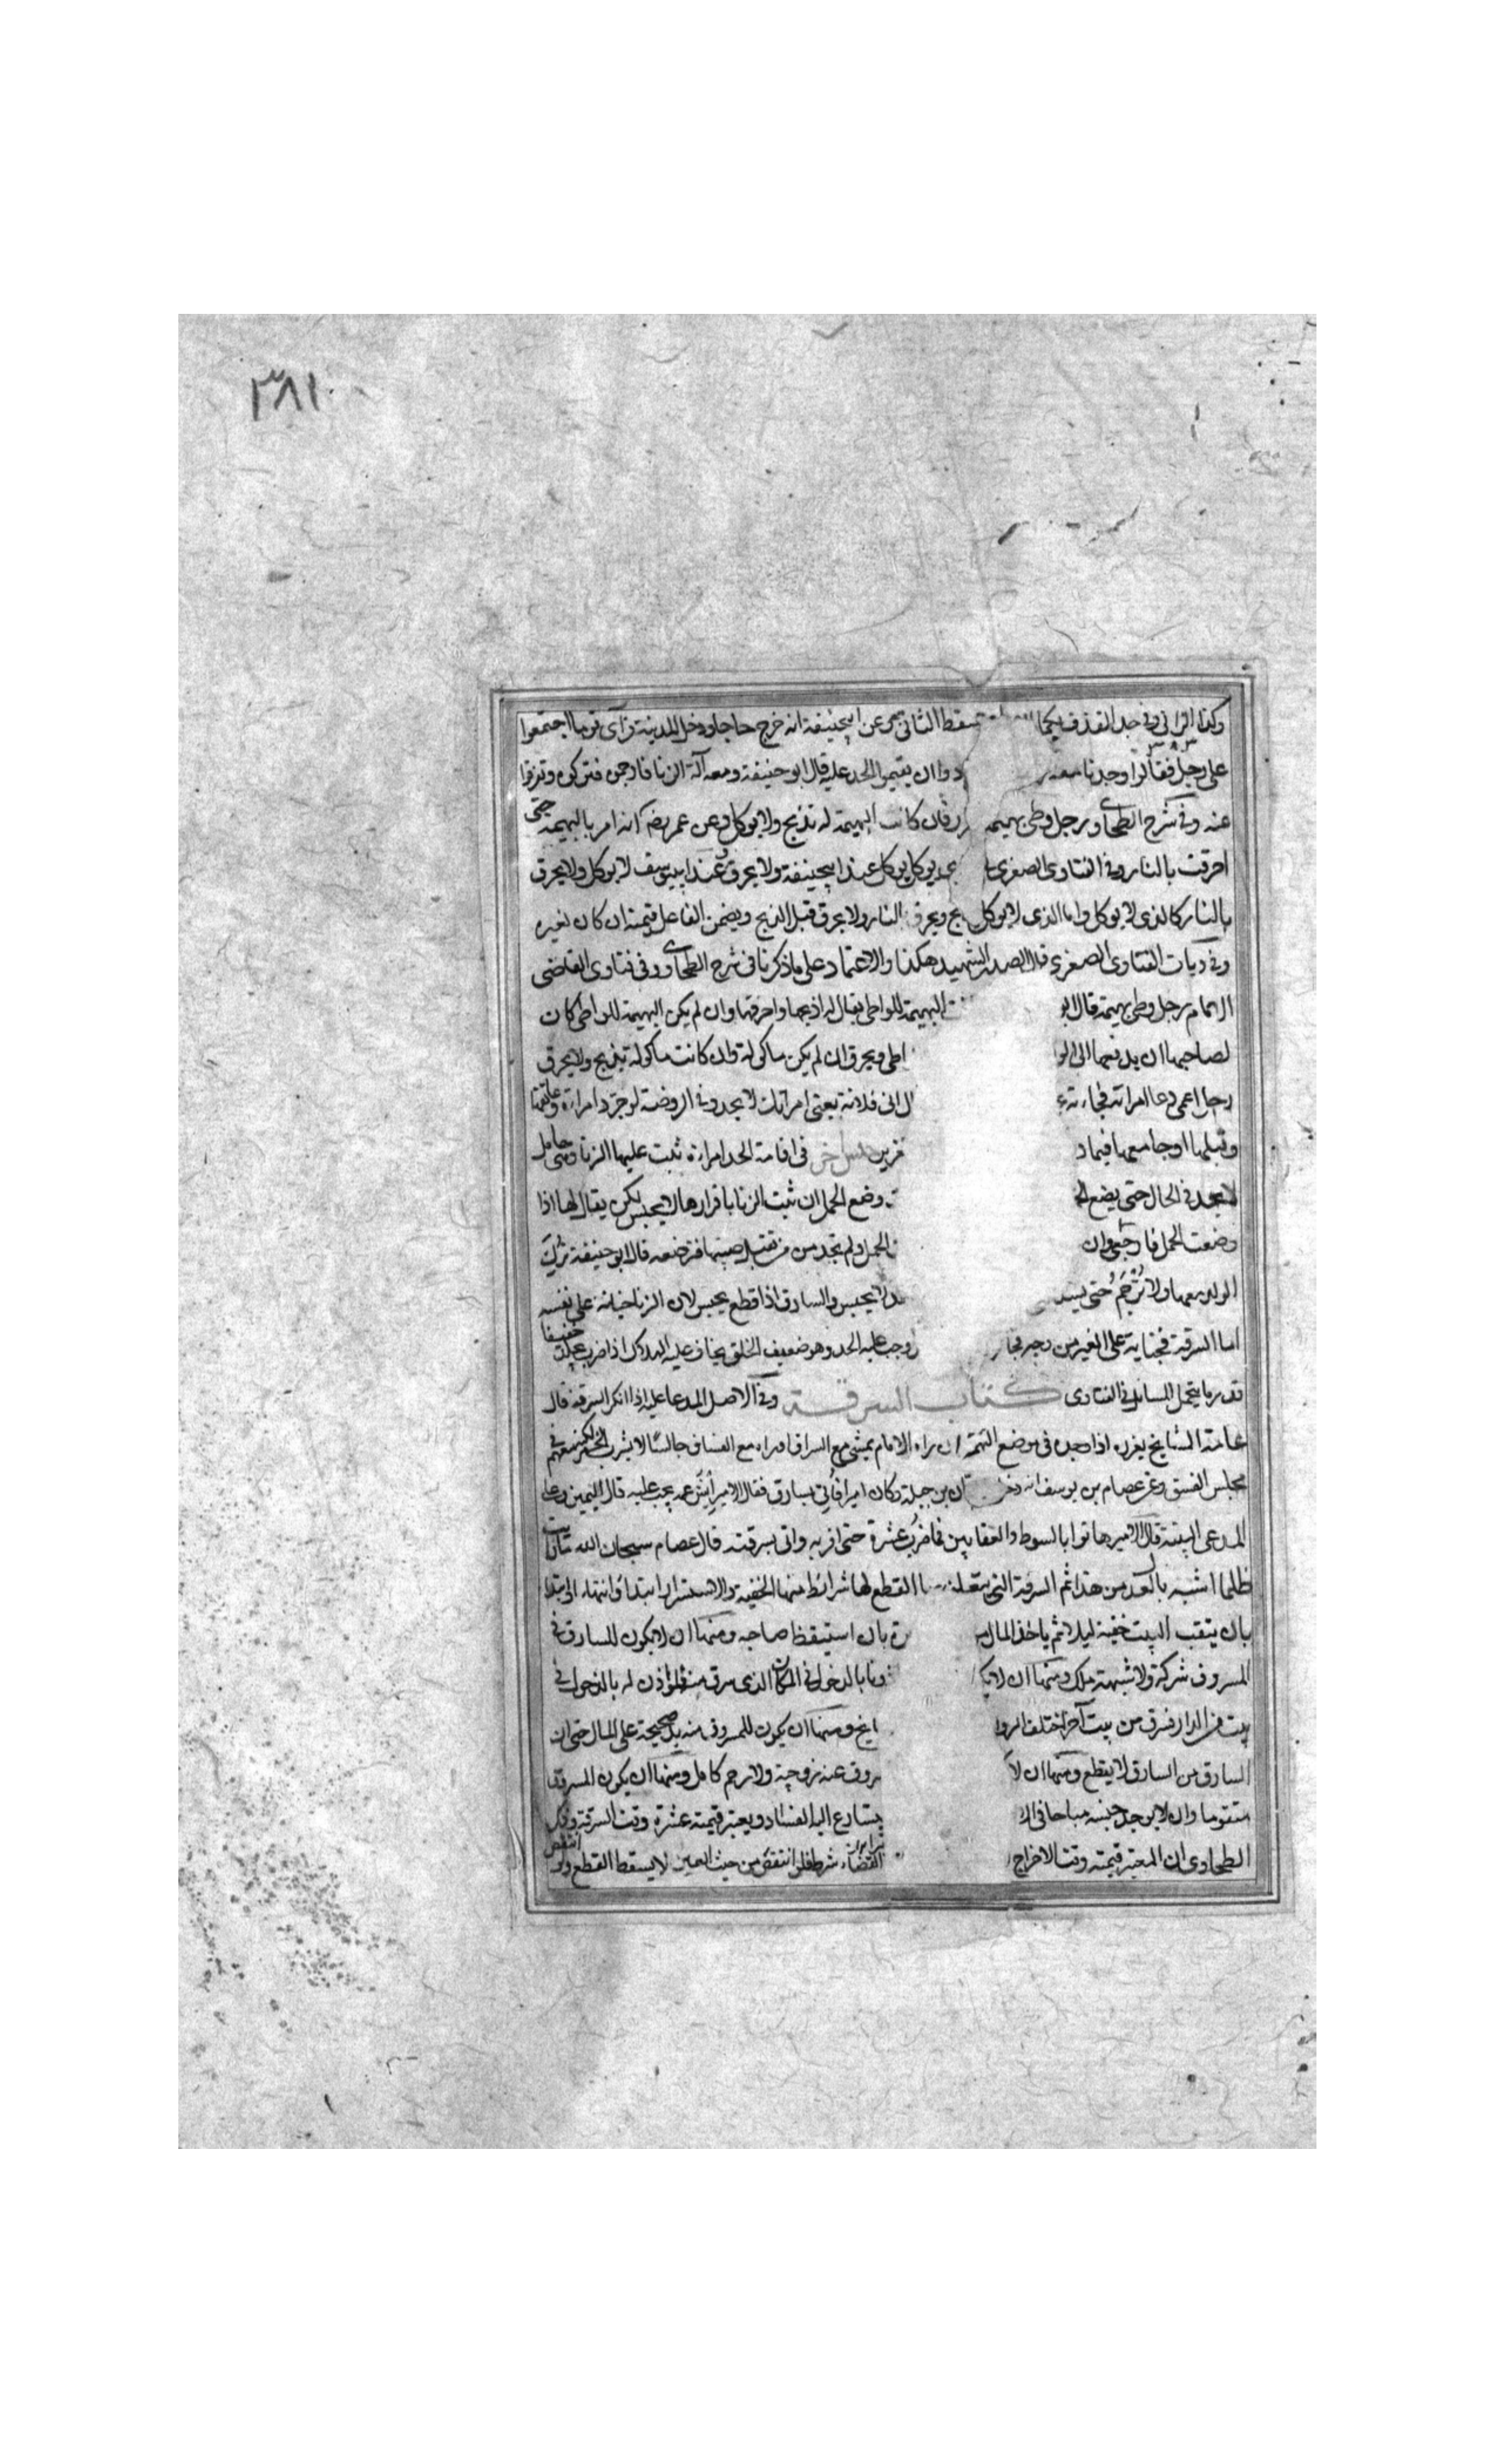 ٣٨١
وكذا الزاني وفي حد القذف سقط الثاني عن ابيحنيفة انه خرج حاجا ودخل المدينة فرأى قوما اجتمعوا
على رجل فقالوا وجدنا معه ان يقيموا الحد عليه قال ابو حنيفة ومعه آلة الزنا فارجمن فتركوه وتفرقوا
عنه وفي شرح الطحاوي رجل وطئ بهيمة كانت البهيمة له تذبح ولا يوكل وعن عمر رضه انه امر بالبهيمة حتى
احرقت بالنار وفي الفتاوى الصغرى يوكل يوكل عند ابيحنيفة ولا يحرق وعند ابييوسف لا يوكل ولا يحرق
بالنار كالذي لا يوكل واما الذي لا يوكل ويحرق النار ولا يحرق قبل الذبح ويضمن الفاعل قيمته ان كان لغيره
وفي ديات الفتاوى الصغرى قال الصدر الشهيد هكذا والاعتماد على ما ذكرنا في شرح الطحاوي وفي فتاوى القاضي
الامام رجل وطئ بهيمة قال ابو البهيمة للواطئ يقال له اذبحها واحرقها وان لم يكن البهيمة للواطئ كان
لصاحبها ان يدفعها الى الو اطى ويحرق ان لم يكن ماكولة وان كانت ماكولة يذبح ولا يحرق
رجل اعمى دعا امراته فجاءته انى فلانة يعني امراتك لا يحد وفي الروضة لو جرد امراة وعانقها
وقبلها او جامعها فيما د في اقامة الحد امراة ثبت عليها الزنا وهي حامل
لا يحد في الحال حتى يضع وضع الحمل ان ثبت الزنا باقرارها لا يحبس لكن يقال لها اذا
وضعت الحمل فارجعي وان الحمل ولم تجد من تقبل صبيها فترضعه قال ابو حنيفة ترك
الولد معها ولا ترجم حتى لا يحبس والسارق اذا قطع يحبس لان الزنا جناية على نفسه
اما السرقة فجناية على الغير من وجه وجب عليه الحد وهو ضعيف الخلق يخاف عليه الهلاك اذا ضرب يجلد خفيفا
قدر ما يتحمل المسائل في الفتاوى كتاب السرقة وفي الاصل المدعا عليه اذا انكر السرقة قال
عامة المشايخ يعزره اذا وجده في موضع التهمة ان راه الامام يمشي مع السراق او راه مع الفساق جالسا لا يشرب الخمر لكنه معهم في
مجلس الفسق وعن عصام بن يوسف انه بن جبلة وكان اميرا فأتي بسارق فقال الامير أيش يجب عليه قال اليمين وعلى
المدعي البينة قال الامير هاتوا بالسوط والعقابين فما ضرب عشرة حتى اقر به واتى بسرقته قال عصام سبحان الله ما رأيت
ظلما اشبه بالعدل من هذا ثم السرقة التي يتعلق القطع لها شرائط منها الخفية والاستسرار ابتداء وانتهاء
بان ينقب البيت خفية ليلا ثم ياخذ المال بان استيقظ صاحبه ومنها ان لا يكون للسارق في
المسروق شركة ولا شبهة ملك ومنها ان لا بالدخول في المكان الذي سرق منه فلو اذن له بالدخول في
بيت من الدار فسرق من بيت آخر اختلف الروا ومنها ان يكون للمسروق منه يد صحيحة على المال حتى ان
السارق من السارق لا يقطع ومنها ان لا عنه زوجية ولا رحم كامل ومنها ان يكون المسروق
متقوما وان لا يوجد جنسه مباحا في يتسارع اليه الفساد ويعتبر قيمته عشرة وقت السرقة وذكر
الطحاوي ان المعتبر قيمته وقت الاخراج القضاء شرط فلو انتقض من حيث العين لا يسقط القطع ولو انتقض